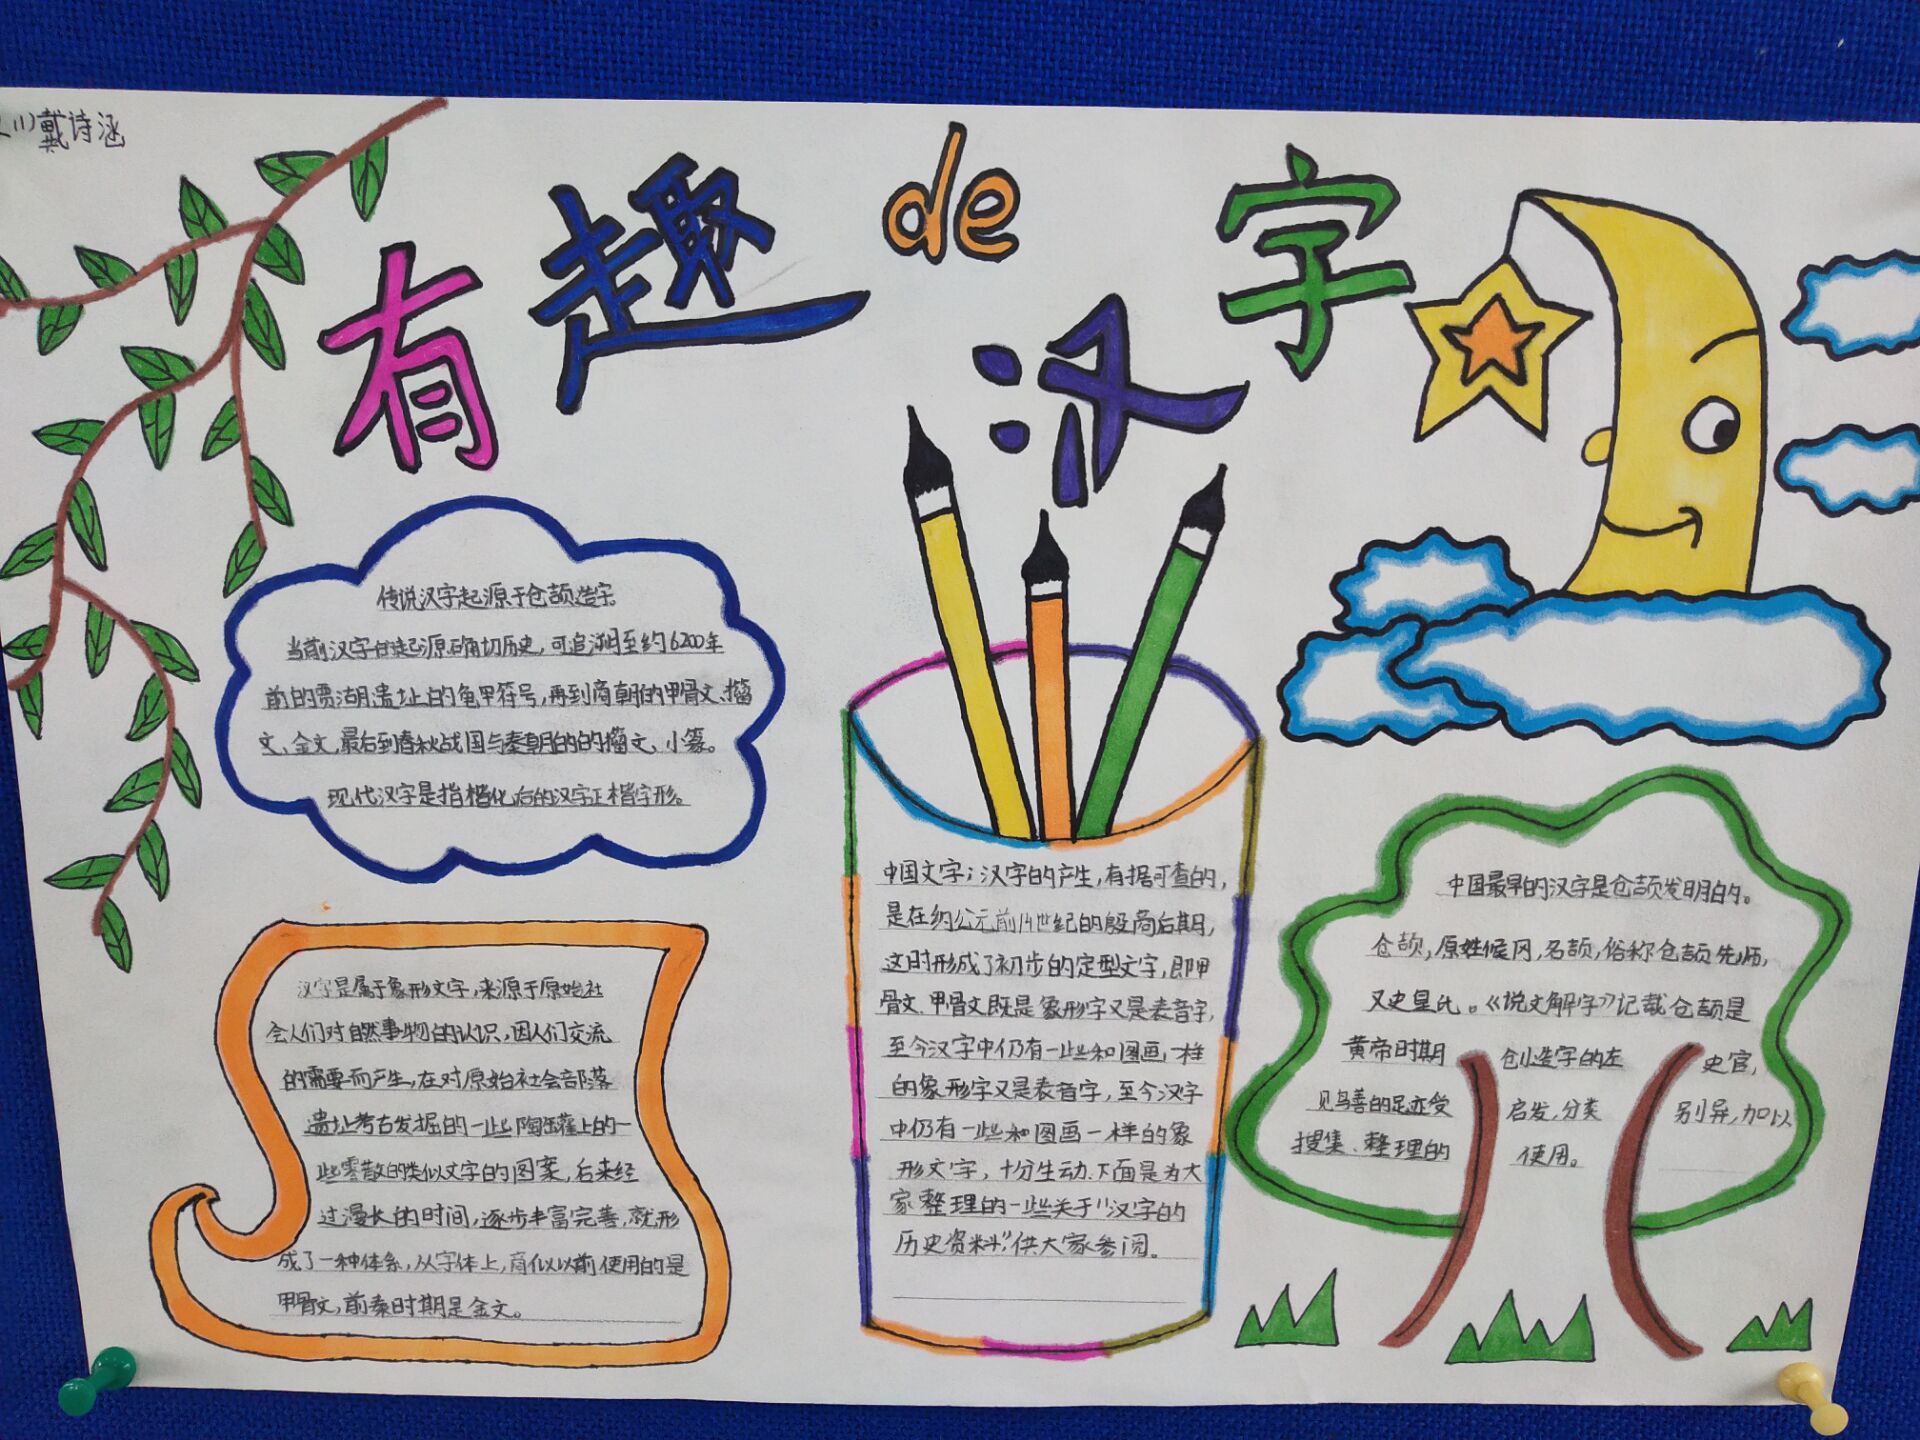 戴诗涵
有趣de汉字
传说汉字起源于仓颉造字。
当前汉字的起源确切历史，可追溯至约6200年
前的贾湖遗址的龟甲符号，再到商朝的甲骨文、籀
文、金文，最后到春秋战国与秦朝的的籀文、小篆。
现代汉字是指楷化后的汉字正楷字形。
汉字是属于象形文字，来源于原始社
会人们对自然事物的认识，因人们交流
的需要而产生，在对原始社会部落
遗址考古发掘的一些陶罐上的一
些零散的类似文字的图案，后来经
过漫长的时间，逐步丰富完善，就形
成了一种体系，从字体上，商以前使用的是
甲骨文，前秦时期是金文。
中国文字；汉字的产生，有据可查的，
是在约公元前14世纪的殷商后期，
这时形成了初步的定型文字，即甲
骨文．甲骨文既是象形字又是表音字，
至今汉字中仍有一些和图画一样
的象形字又是表音字，至今汉字
中仍有一些和图画一样的象
形文字，十分生动．下面是为大
家整理的一些关于“汉字的
历史资料”，供大家参阅。
中国最早的汉字是仓颉发明的。
仓颉，原姓候冈，名颉，俗称仓颉先师，
又史皇氏。《说文解字》记载仓颉是
黄帝时期 创造字的左 史官，
见鸟兽的足迹受 启发，分类 别异，加以
搜集、整理的 使用。